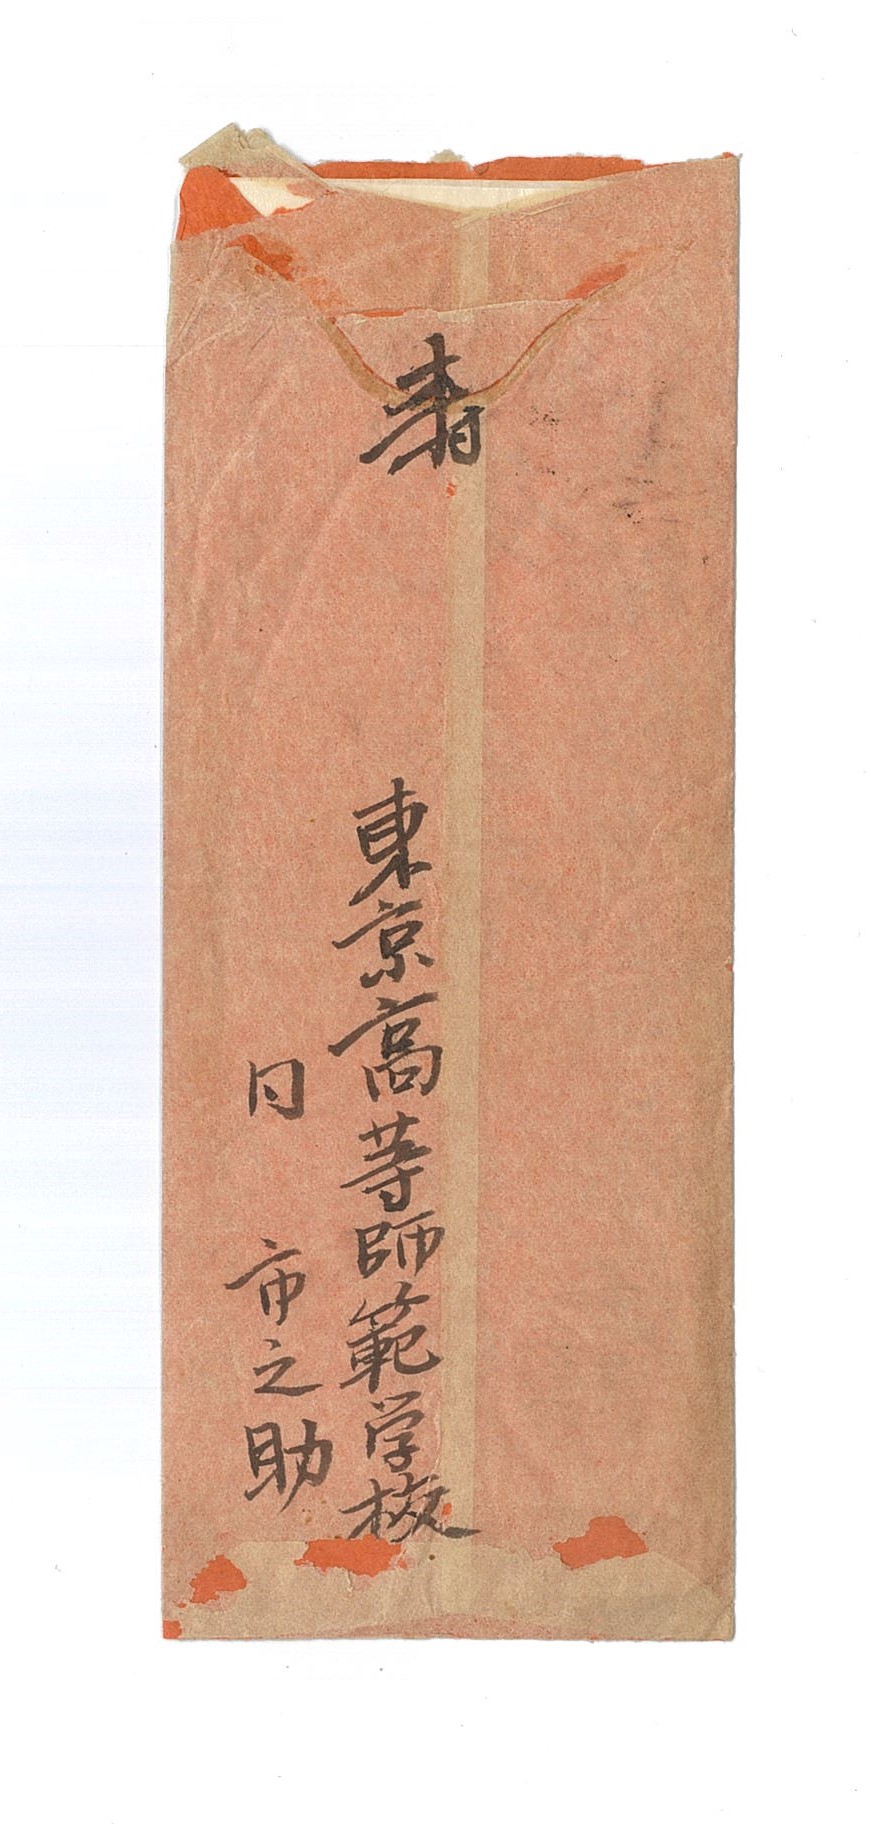 東京高等師範学校
市之助